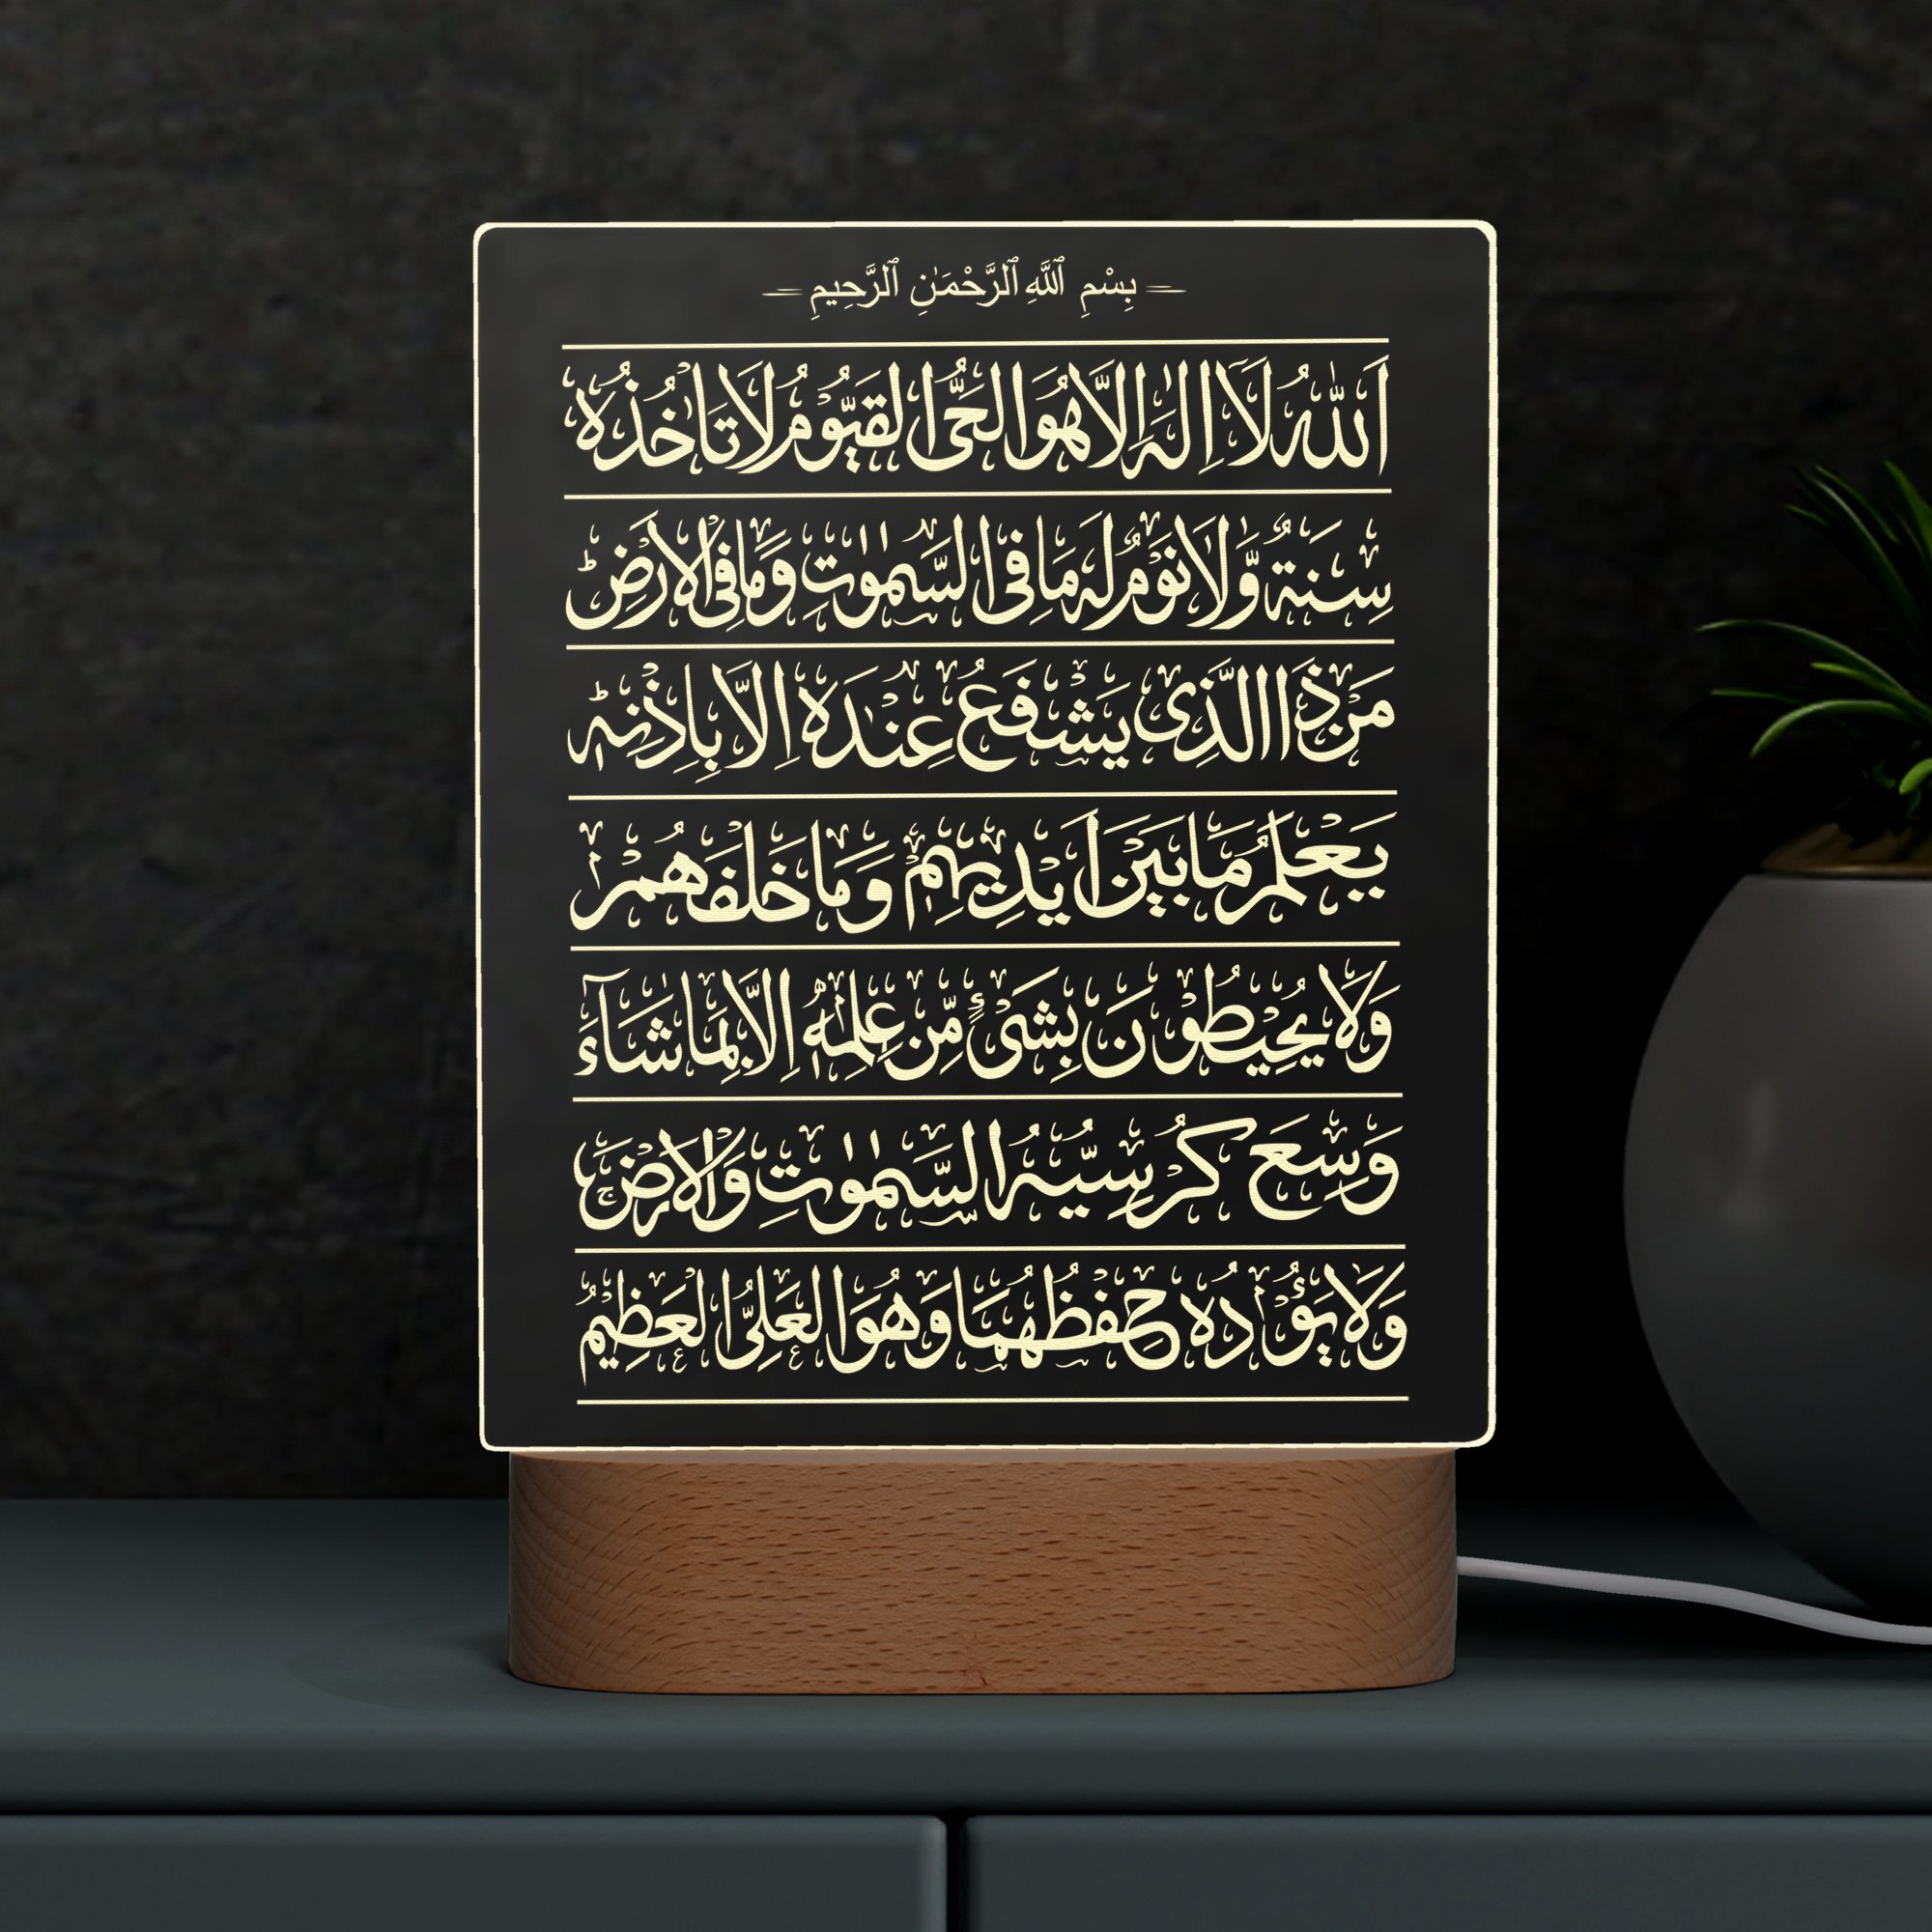 بِسْمِ ٱللَّهِ ٱلرَّحْمَـٰنِ ٱلرَّحِيمِ
اَللّٰهُ لَآ اِلٰهَ اِلَّا هُوَ الْحَىُّ الْقَيُّوْمُ لَا تَاْخُذُهٗ
سِنَةٌ وَّلَا نَوْمٌ لَهٗ مَا فِى السَّمٰوٰتِ وَمَا فِى الْاَرْضِ ؕ
مَنْ ذَا الَّذِىْ يَشْفَعُ عِنْدَهٗ اِلَّا بِاِذْنِهٖ ؕ
يَعْلَمُ مَا بَيْنَ اَيْدِيْهِمْ وَمَا خَلْفَهُمْ ۚ
وَلَا يُحِيْطُوْنَ بِشَىْءٍ مِّنْ عِلْمِهٖۤ اِلَّا بِمَا شَآءَ
وَسِعَ كُرْسِيُّهُ السَّمٰوٰتِ وَالْاَرْضَ ۚ
وَلَا يَؤُدُهٗ حِفْظُهُمَا وَهُوَ الْعَلِىُّ الْعَظِيْمُ